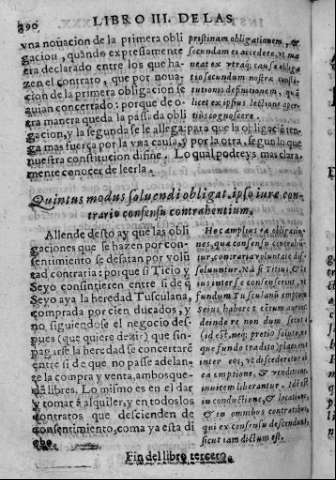 390 LIBRO III. DE LAS
vna nouacion de la primera obli
gacion, quādo expressamente
era declarado entre los que ha-
zen el contrato, que por noua-
cion de la primera obligacion se
guian concertado: porque de o-
gra manera queda la passada obli
gacion, y la segunda se le allega: para que la obligaciō ten-
ga mas fuerça por la vna causa, y por la otra, segun lo que
nuestra constitucion difine. Lo qual podreys mas clara-
mente conocer de leerla.
pristinam obligationem, &
secundam ei accedere, vt ma
neat ex vtraq; causa obliga
tio secundum nostra consti-
tutionis definitionem, quā
licet ex ipsius lectione aper-
tius cognoscere.
Quintus modus soluendi obligat. ipso iure con-
trario consensu contrahentium.
Allende desto ay que las obli
gaciones que se hazen por con-
sentimiento se desatan por volū
tad contraria: porque si Ticio y
Seyo consintieren entre si de q̄
Seyo aya la heredad Tusculana,
comprada por cien ducados, y
no siguiendose el negocio des-
pues (que quiere dezir) que sin-
pagarse la heredad se concertarē
entre si de que no passe adelan-
te la compra y venta, ambos que-
dā libres. Lo mismo es en el dar
y tomar à alquiler, y en todos los
contratos que descienden de
consentimiento, como ya esta di
cho.
Hoc amplius ea obligatio-
nes, quæ consensu contrahū-
tur, contraria voluntate dis-
soluuntur. Nā si Titius, & Se
ius inter se consenserint, vt
fundum Tusculanum emptum
Seius haberet centum aureis
deinde re non dum secuta
(id est, neq; pretio soluto, ne-
que fundo tradito) placuerit
inter eos, vt discederetur
ea emptione, & venditione
inuicem liberantur. Idē est
in conductione, & locatione,
& in omnibus contractibus
qui ex consensu descendunt,
sicut iam dictum est.
Fin del libro tercero.